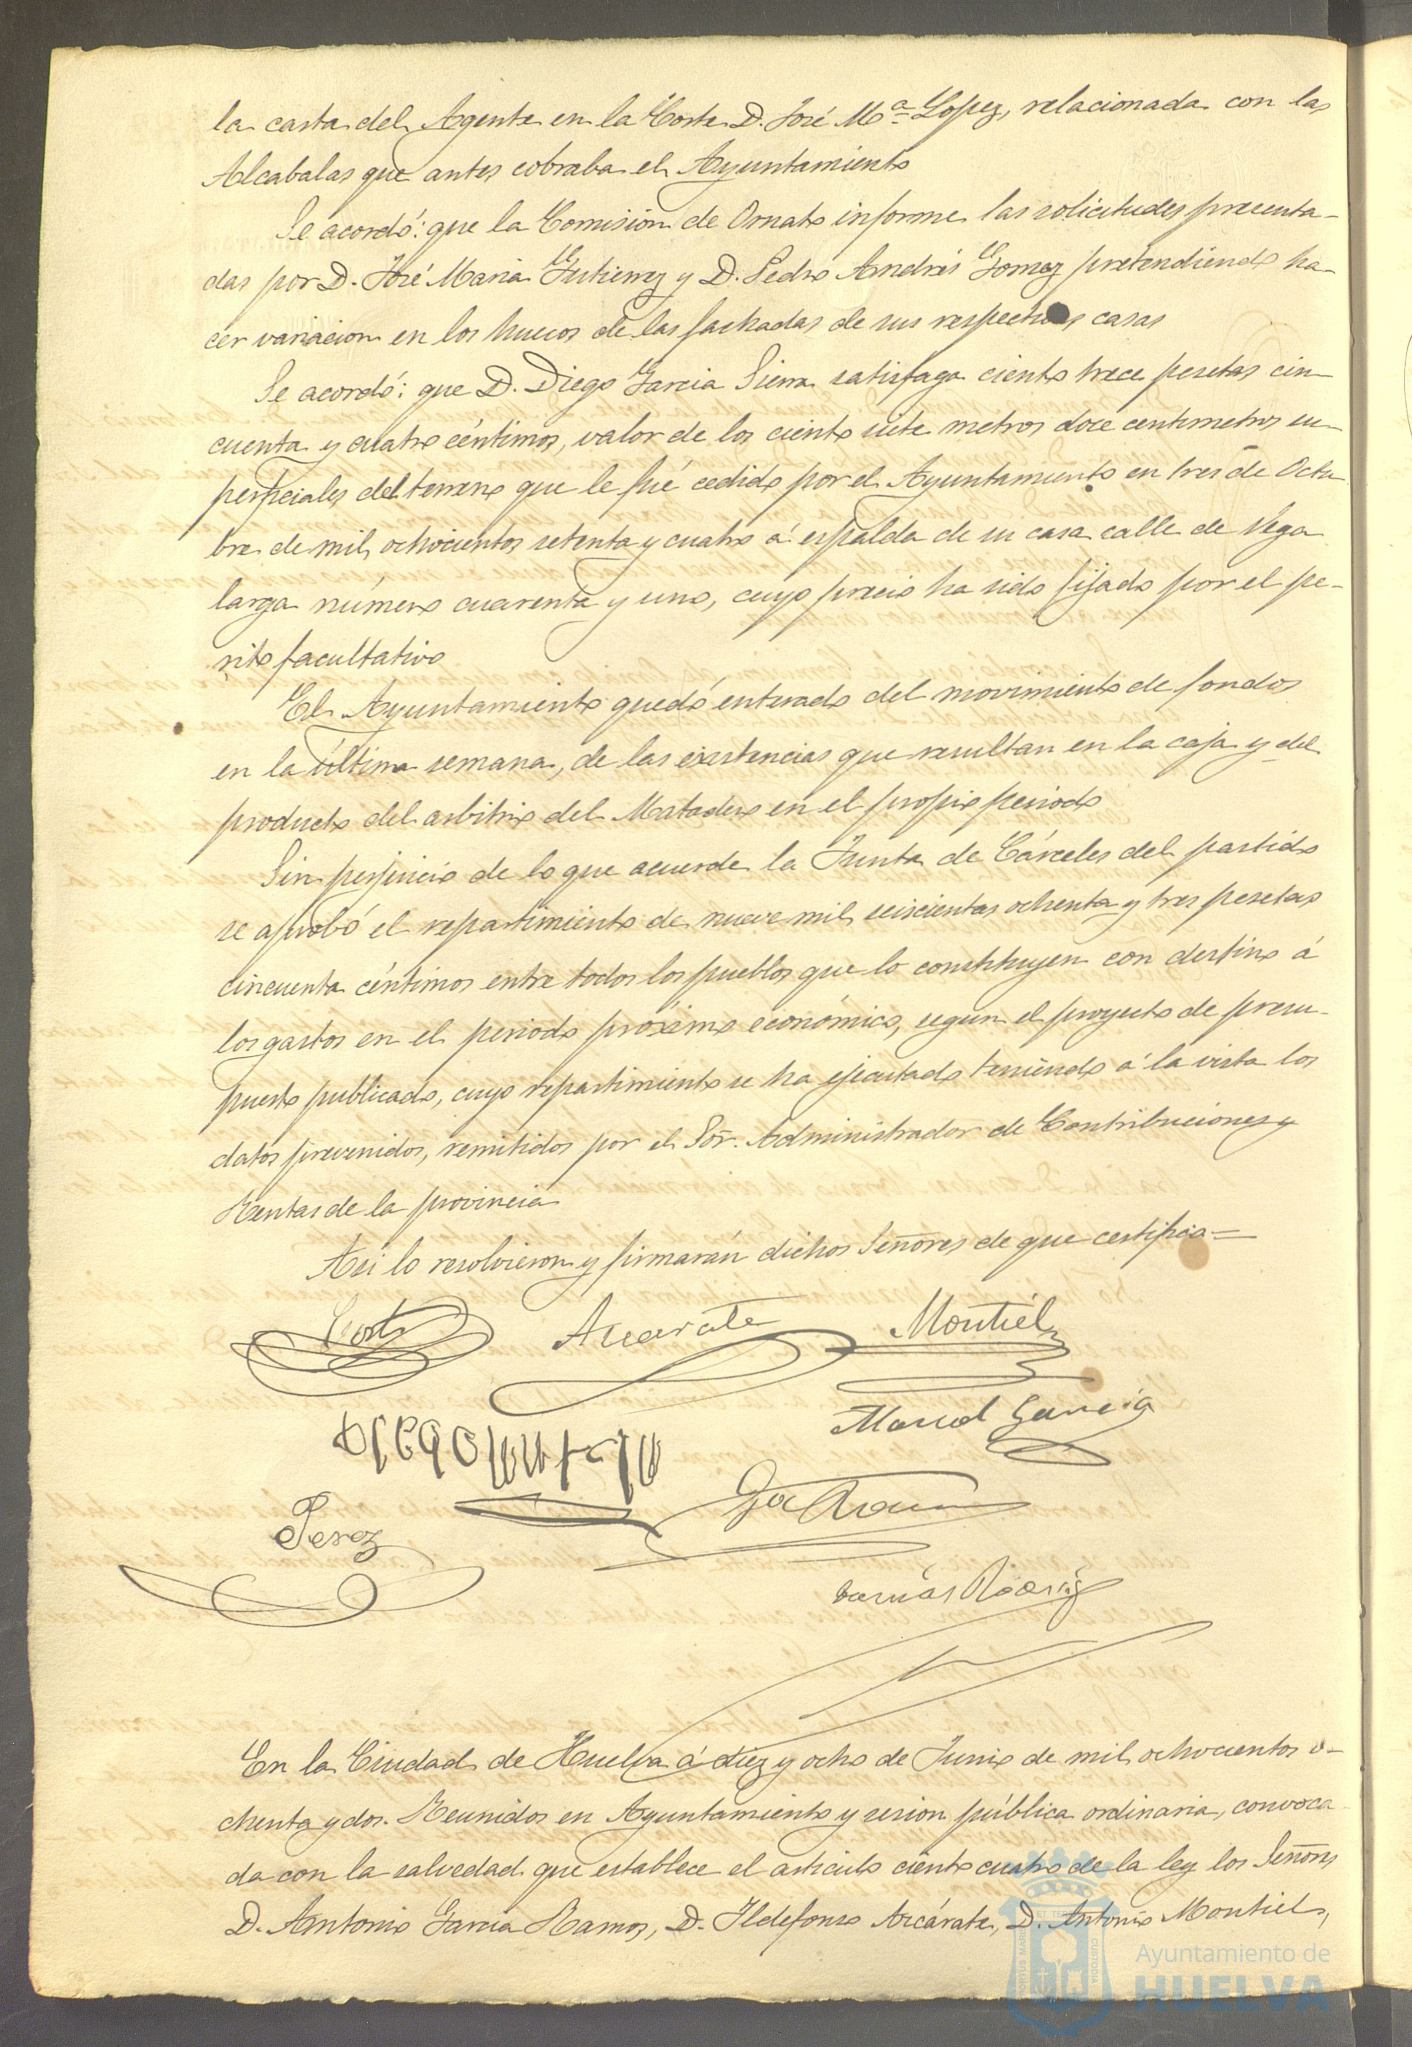 la carta del Agente en la Corte D. José Mª Lopez, relacionada con las
Alcabalas que antes cobraba el Ayuntamiento
Se acordó: que la Comisión de Ornato informe las solicitudes presenta-
das por D. José Maria Gutierrez y D. Pedro Andrés Gomez pretendiendo ha-
cer variacion en los huecos de las fachadas de sus respectivas casas
Se acordó: que D. Diego Garcia Sierra satisfaga ciento trece pesetas cin-
cuenta y cuatro céntimos, valor de los ciento siete metros doce centimetros su-
perficiales del terreno que le fué cedido por el Ayuntamiento en tres de Octu-
bre de mil ochocientos setenta y cuatro á espalda de su casa calle de Vega
larga número cuarenta y uno, cuyo precio ha sido fijado por el pe-
rito facultativo
El Ayuntamiento quedó enterado del movimiento de fondos
en la última semana, de las existencias que resultan en la caja y del
producto del arbitrio del Matadero en el propio periodo
Sin perjuicio de lo que acuerde la Junta de Cárceles del partido
se aprobó el repartimiento de nueve mil seiscientas ochenta y tres pesetas
cincuenta céntimos entre todos los pueblos que lo constituyen con destino á
los gastos en el periodo próximo económico, segun el proyecto de presu-
puesto publicado, cuyo repartimiento se ha ejecutado teniendo á la vista los
datos prevenidos, remitidos por el Sor. Administrador de Contribuciones y
Rentas de la provincia
Asi lo resolvieron y firmarán dichos Señores de que certifico=
Azcarate Montiel
Manuel Garcia
Perez
Tomás Rodrig
En la Ciudad de Huelva á diez y ocho de Junio de mil ochocientos o-
chenta y dos. Reunidos en Ayuntamiento y sesion pública ordinaria, convoca-
da con la salvedad que establece el articulo ciento cuatro de la ley los Señores
D. Antonio Garcia Ramos, D. Ildefonso Azcárate, D. Antonio Montiel,
Ayuntamiento de
HUELVA